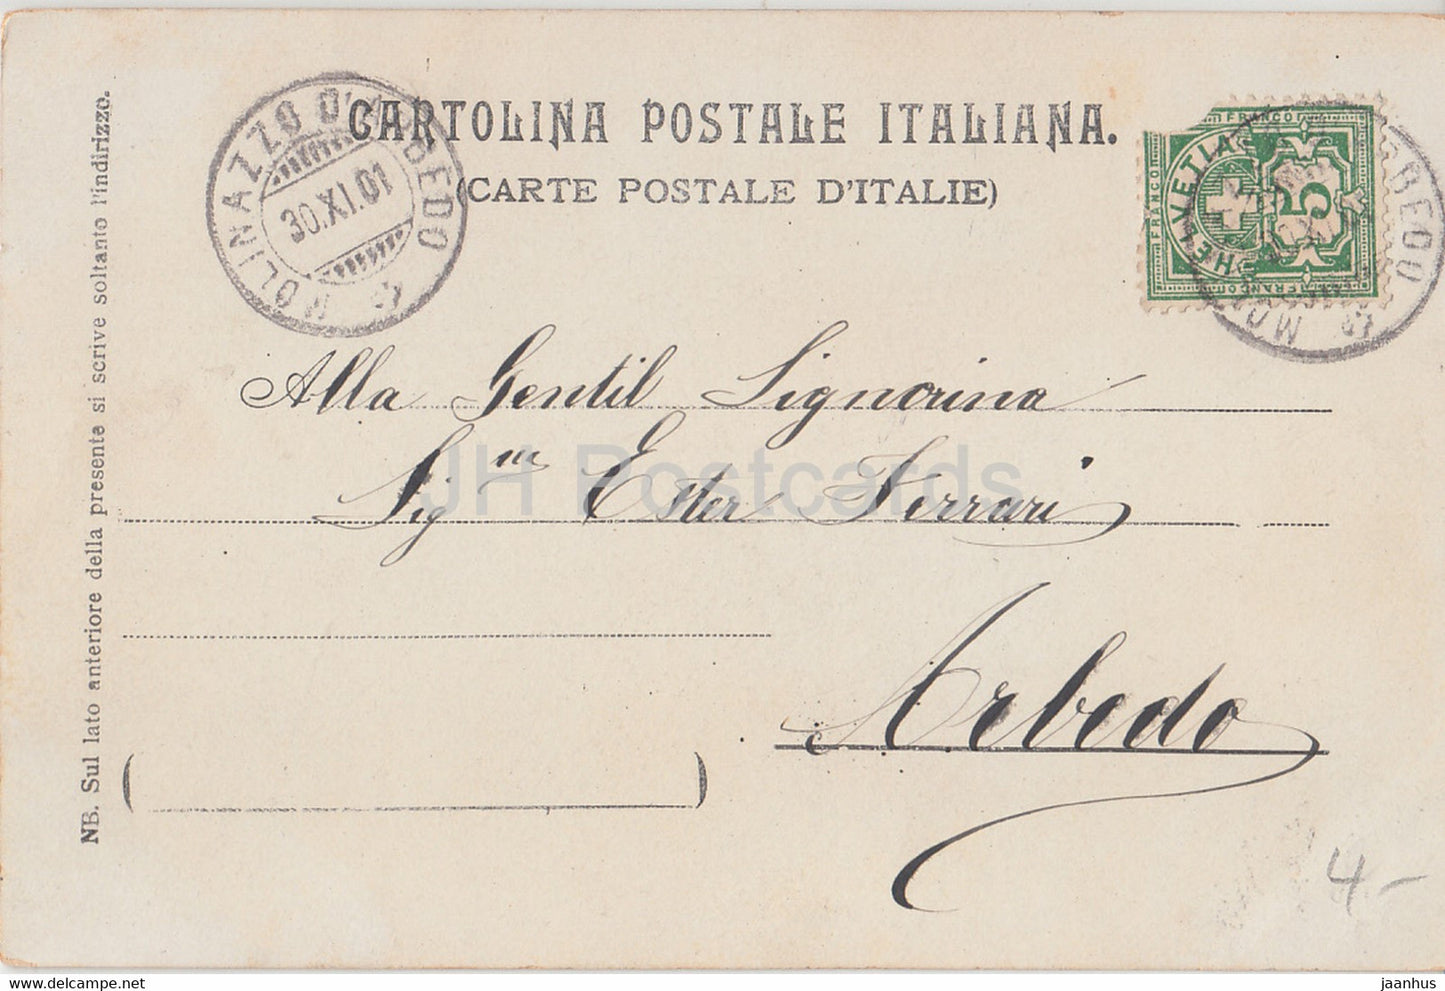 CARTOLINA POSTALE ITALIANA.
(CARTE POSTALE D'ITALIE)
MOLINAZZO D'ARBEDO
30.XI.01
FRANCO
FRANCO
HELVETIA
5
FRANCO
NB. Sul lato anteriore della presente si scrive soltanto l'indirizzo.
Alla Gentil Signorina
Sig na Ester Ferrari
Arbedo
4-
JH Postcards
jaanhus